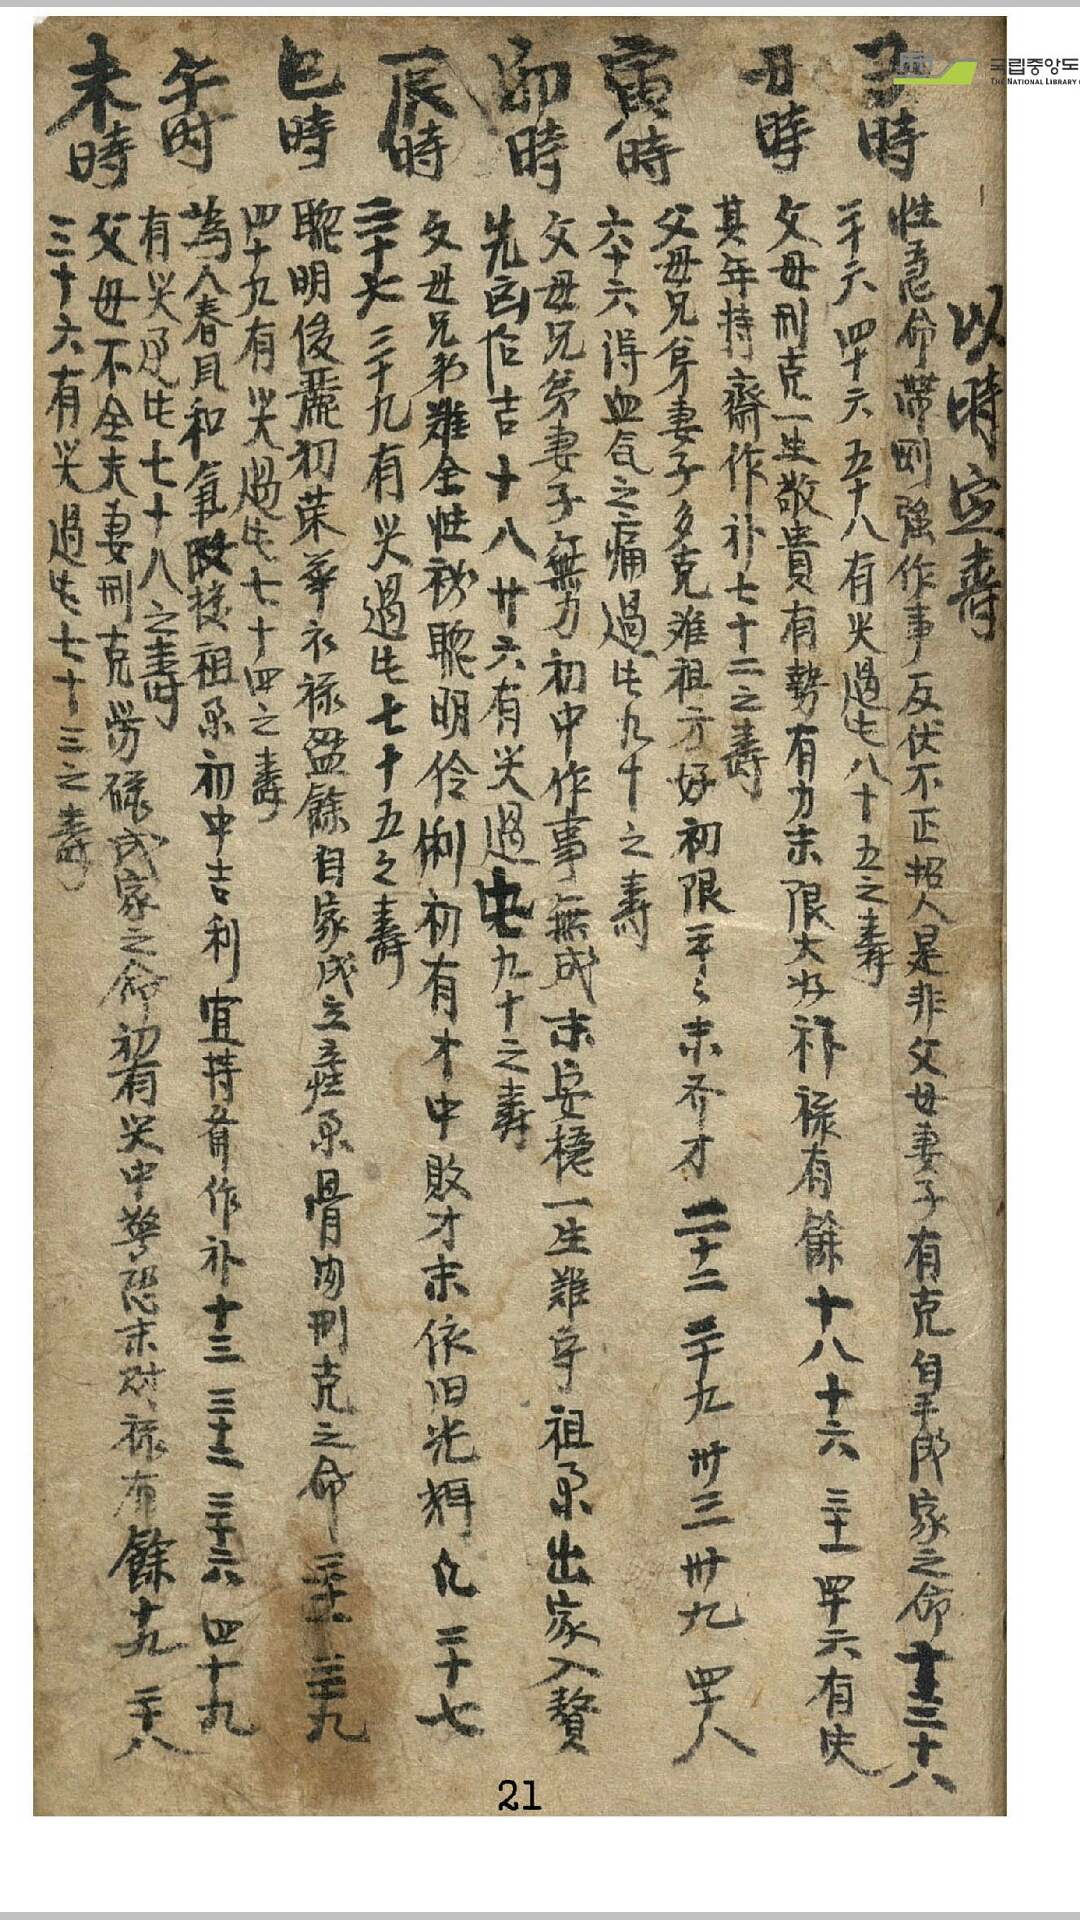 以時定壽
子時
性急命帶剛强作事反伏不正招人是非父母妻子有克自手成家之命十三 三十八
三十六 四十六 五十八有災過此八十五之壽
丑時
父母刑克一生敬貴有勢有力末限大好衤祿有餘十八 十六 三十一 四十六有失
其年持齋作补七十二之壽
寅時
父母兄弟妻子多克难祖方好初限平〻末齐才 二十二 二十九 卅三 卅九 四十八
六十六得血气之痛過此九十之壽
卯時
父母兄弟妻子無力初中作事無成末安穩一生難守祖業出家入贅
先凶后吉十八 廿六有災過此九十之壽
辰時
父母兄弟難全性初聰明伶俐初有才中敗才末依旧光輝 九 二十七
二十九有災過此七十五之壽
巳時
聰明俊麗初荣華衣祿盈餘自家成立產業骨肉刑克之命 三十一 三十九
四十九有災過此七十四之壽
午时
為人春風和氣改接祖業初中吉利宜持斋作补十三 三十二 三十六 四十九
有災过此七十八之壽
未時
父母不全夫妻刑克勞碌成家之命初有災中驚恐末財祿有餘十九 二十八
三十六有災過此七十三之壽
국립중앙도
THE NATIONAL LIBRARY
21